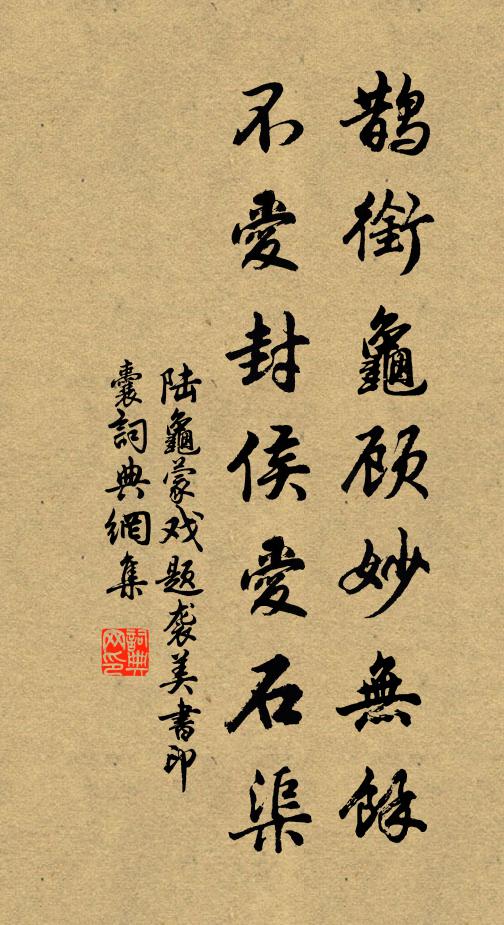 鵲銜龜顧妙無餘
不愛封侯愛石渠
陆龜蒙戏題袭美書印
囊詞典網集
詞典
网印